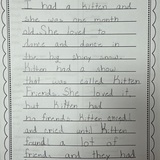 I had a kitten and
she was one month
old. She loved to
dance and dance in
the big shiny snow.
Kitten had a show
that was called Kitten
Friends. She loved it
but Kitten had
no friends. Kitten cried
and cried until Kitten
found a lot of
friends and they had